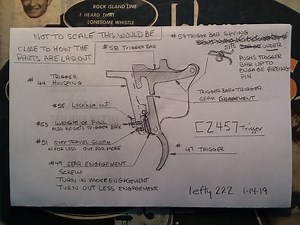 ROCK ISLAND LINE
I HEARD THAT
LONESOME WHISTLE
NOT TO SCALE THIS WOULD BE
CLOSE TO HOW THE
PARTS ARE LAID OUT
#58 TRIGGER BAR
#59 TRIGGER BAR SPRING
SITS UNDER
PUSHS TRIGGER
BAR UP TO
ENGAGE FIRING
PIN
# TRIGGER
44 HOUSING
TRIGGER BAR + TRIGGER
SEAR ENGAGEMENT
#55 LOCKING NUT
#53 WEIGHT OF PULL
#51 OVER TRAVEL SCREW
IN FOR LESS OUT FOR MORE
#49 SEAR ENGAGEMENT
SCREW
TURN IN MORE ENGAGEMENT
TURN OUT LESS ENGAGEMENT
CZ 457 Trigger
#47 TRIGGER
lefty 222 1-14-19